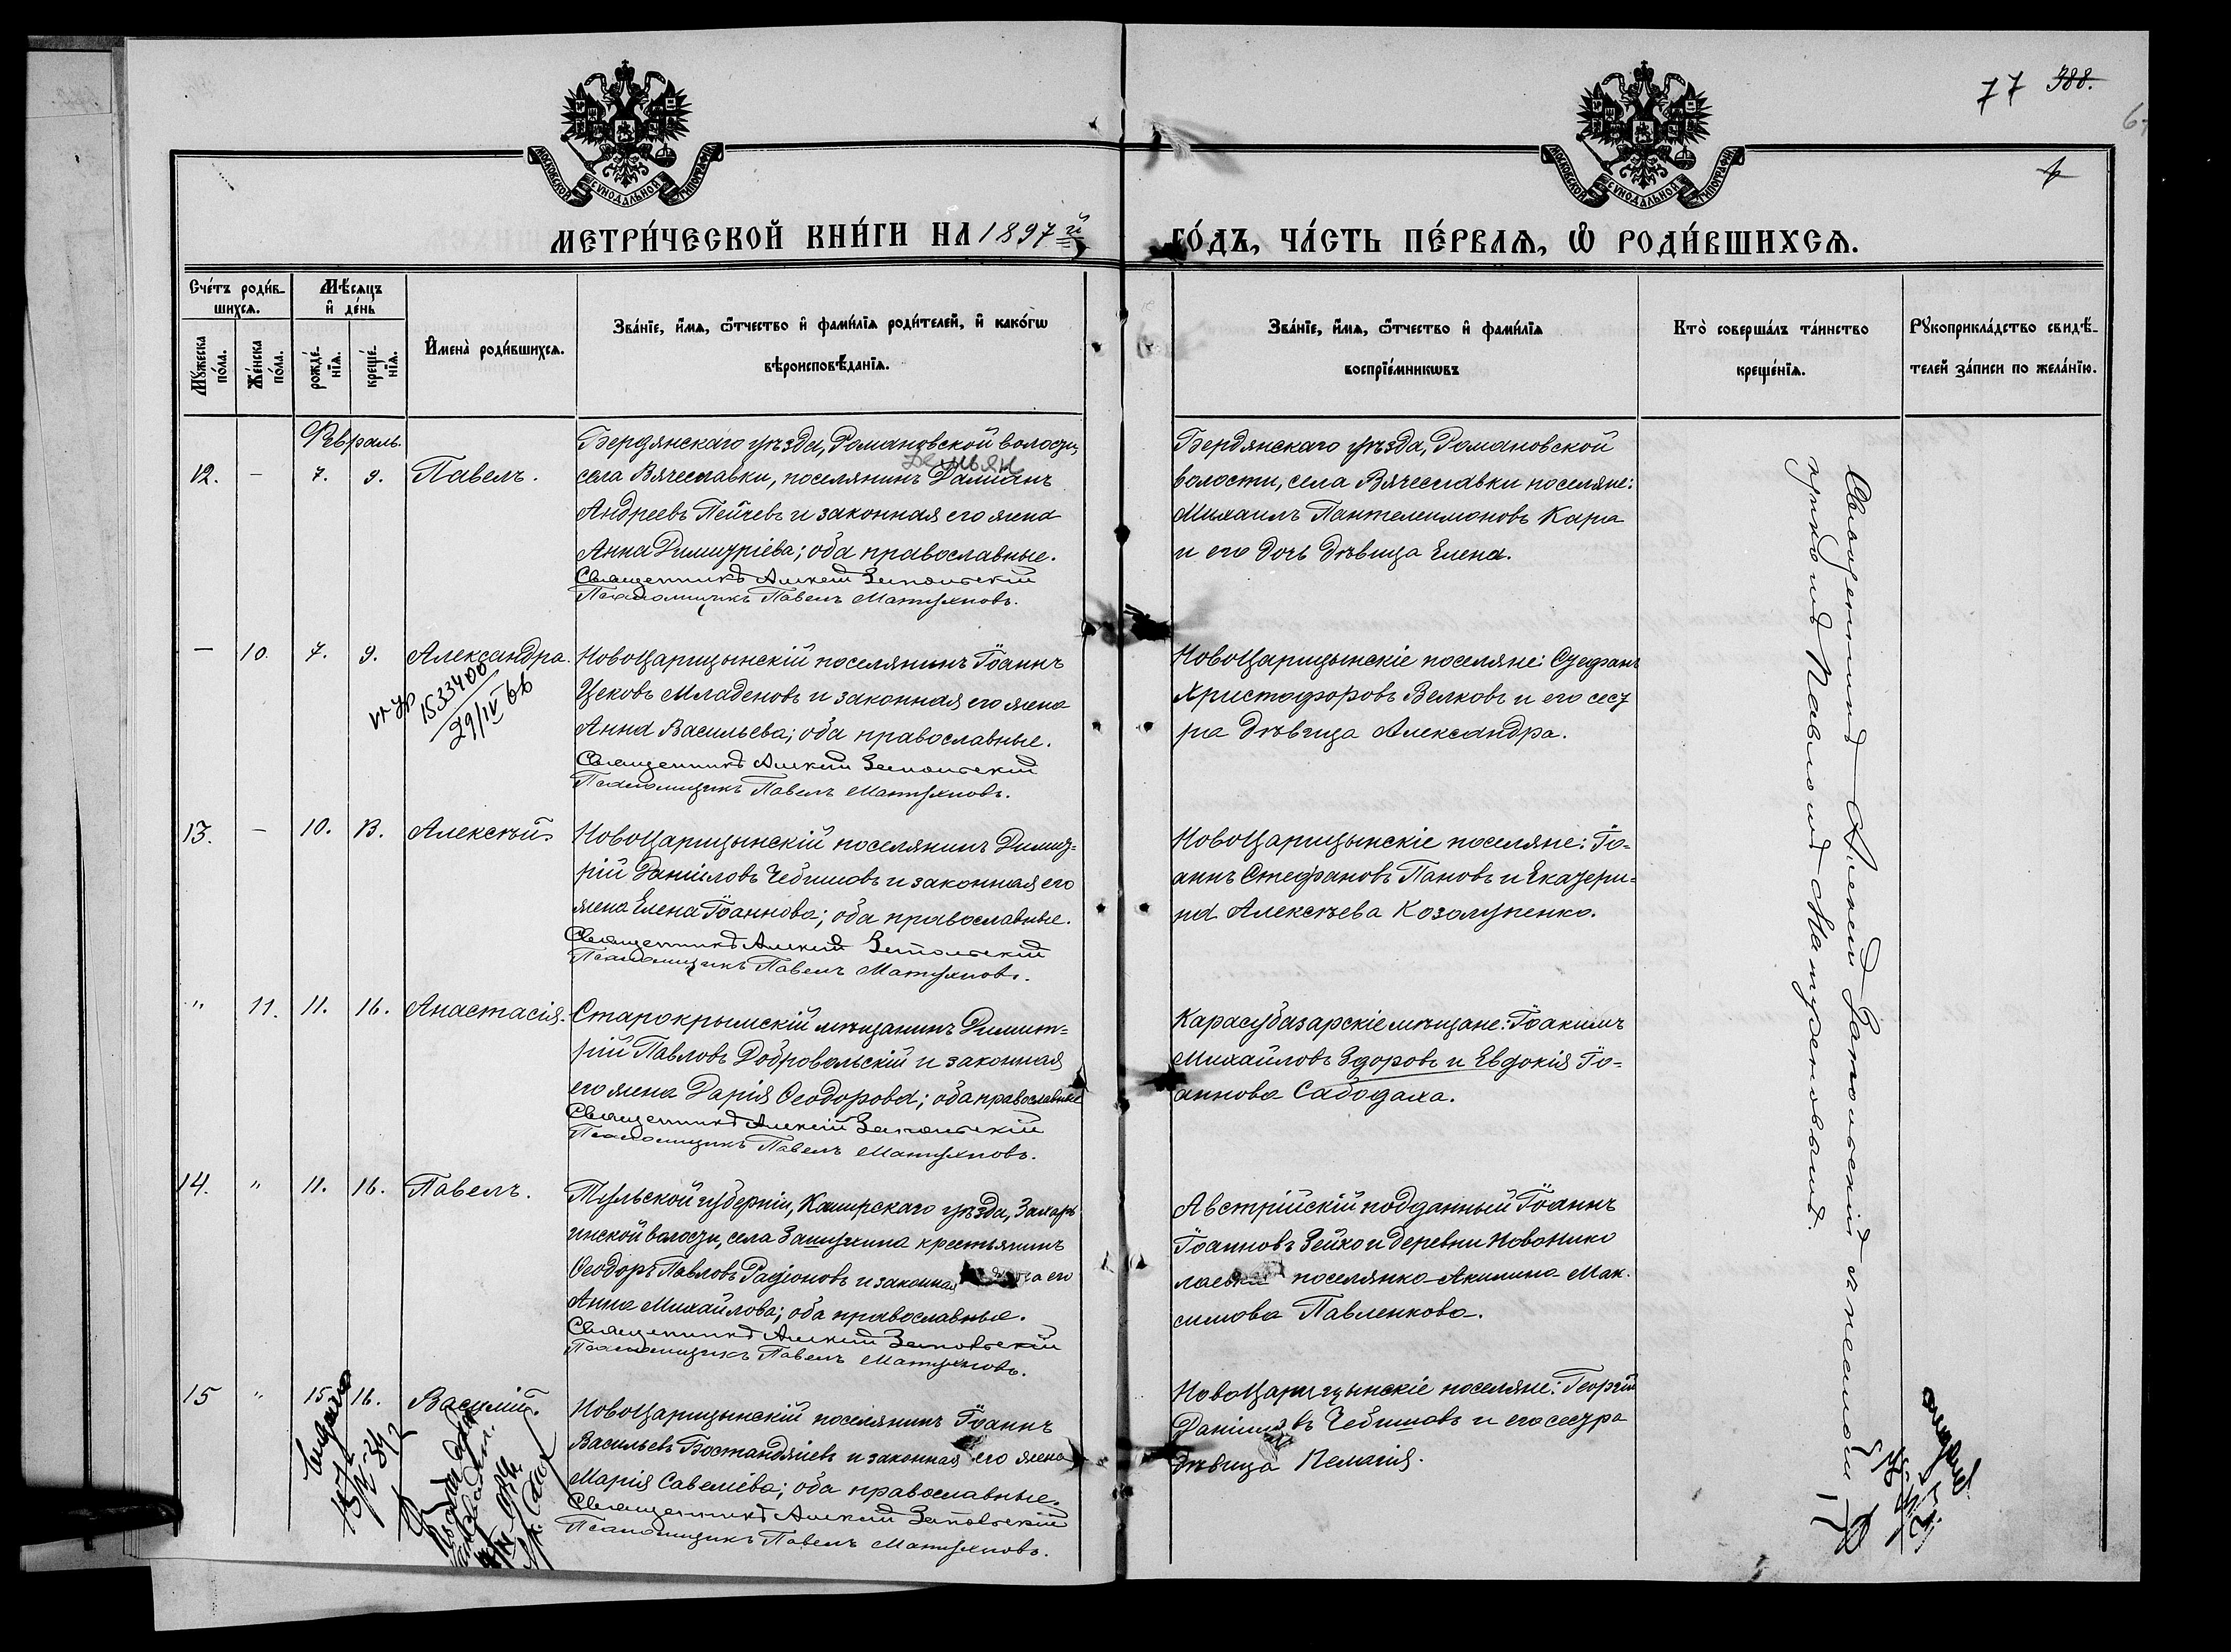 77 388.
6
МОСКОВСКОЙ СѴНОДАЛЬНОЙ ТИПОГРАФІИ
МОСКОВСКОЙ СѴНОДАЛЬНОЙ ТИПОГРАФІИ
МЕТРИ́ЧЕСКОЙ КНИ́ГИ НА 1897й ГО́ДЪ, ЧА́СТЬ ПЕ́РВАѦ, Ѡ҆ РОДИ́ВШИХСѦ.
Сче́тъ роди́в-
шихсѧ.
Мꙋ́жеска по́ла.
Же́нска по́ла.
Мѣ́сѧцъ и҆ де́нь
рожде́-
нїѧ.
креще́-
нїѧ.
И҆мена̀ роди́вшихсѧ.
Зва́нїе, и҆́мѧ, ѻ҆́тчество и҆ фами́лїѧ роди́телей, и҆ како́гѡ
вѣроисповѣ́данїѧ.
Зва́нїе, и҆́мѧ, ѻ҆́тчество и҆ фами́лїѧ
воспрїе́мникѡвъ
Кто̀ соверша́лъ та́инство
креще́нїѧ.
Рꙋкоприкла́дство свидѣ́-
телей за́писи по жела́нїю.
Февраль.
12. - 7. 9. Павелъ.
Бердянскаго уѣзда, Романовской волости,
Демьян
села Вячеславки, поселянинъ Даміанъ
Андреевъ Пейчевъ и законная его жена
Анна Димитріева; оба православные.
Священникъ Алексій Запольскій
Псаломщикъ Павелъ Матухновъ.
Бердянскаго уѣзда, Романовской
волости, села Вячеславки поселяне:
Михаилъ Пантелеимоновъ Кара
и его дочь дѣвица Елена.
- 10. 7. 9. Александра.
1533400
29/IV 66
Новоцарицынскій поселянинъ Іоаннъ
Цековъ Младеновъ и законная его жена
Анна Васильева; оба православные.
Священникъ Алексій Запольскій
Псаломщикъ Павелъ Матухновъ.
Новоцарицынскіе поселяне: Стефанъ
Христофоровъ Велковъ и его сест
ра дѣвица Александра.
13. - 10. 13. Алексѣй.
Новоцарицынскій поселянинъ Димит=
рій Даніиловъ Чебишовъ и законная его
жена Елена Іоаннова; оба православные.
Священникъ Алексій Запольскій
Псаломщикъ Павелъ Матухновъ.
Новоцарицынскіе поселяне: Іо=
аннъ Стефановъ Пановъ и Екатери=
на Алексѣева Козолупенко.
" 11. 11. 16. Анастасія.
Старокрымскій мѣщанинъ Димит=
рій Павловъ Добровольскій и законная
его жена Дарія Ѳеодорова; оба православные
Священникъ Алексій Запольскій
Псаломщикъ Павелъ Матухновъ.
Карасубазарскіе мѣщане: Іоакимъ
Михайловъ Здоровъ и Евдокія Іо=
аннова Сабодаха.
14. " 11. 16. Павелъ.
Тульской губерніи, Каширскаго уѣзда, Захарь
инской волости, села крестьянинъ
Ѳеодоръ Павловъ Радіоновъ и законная жена его
Анна Михайлова; оба православные.
Священникъ Алексій Запольскій
Псаломщикъ Павелъ Матухновъ.
Австрійскій подданный Іоаннъ
Іоанновъ Зейхо и деревни Новонико
лаевки поселянка Акилина Мак.
симова Павленкова.
15 " 15 16. Василій.
Выдано
Новоцарицынскій поселянинъ Іоаннъ
Васильевъ Бостанджіевъ и законная его жена
Марія Савеліева; оба православные.
Священникъ Алексій Запольскій
Псаломщикъ Павелъ Матухновъ.
Новоцарицынскіе поселяне: Георгій
Даніиловъ Чебишовъ и его сестра
дѣвица Пелагія.
Священникъ Алексій Запольскій съ псаломщ
комъ Павломъ Матухновымъ.